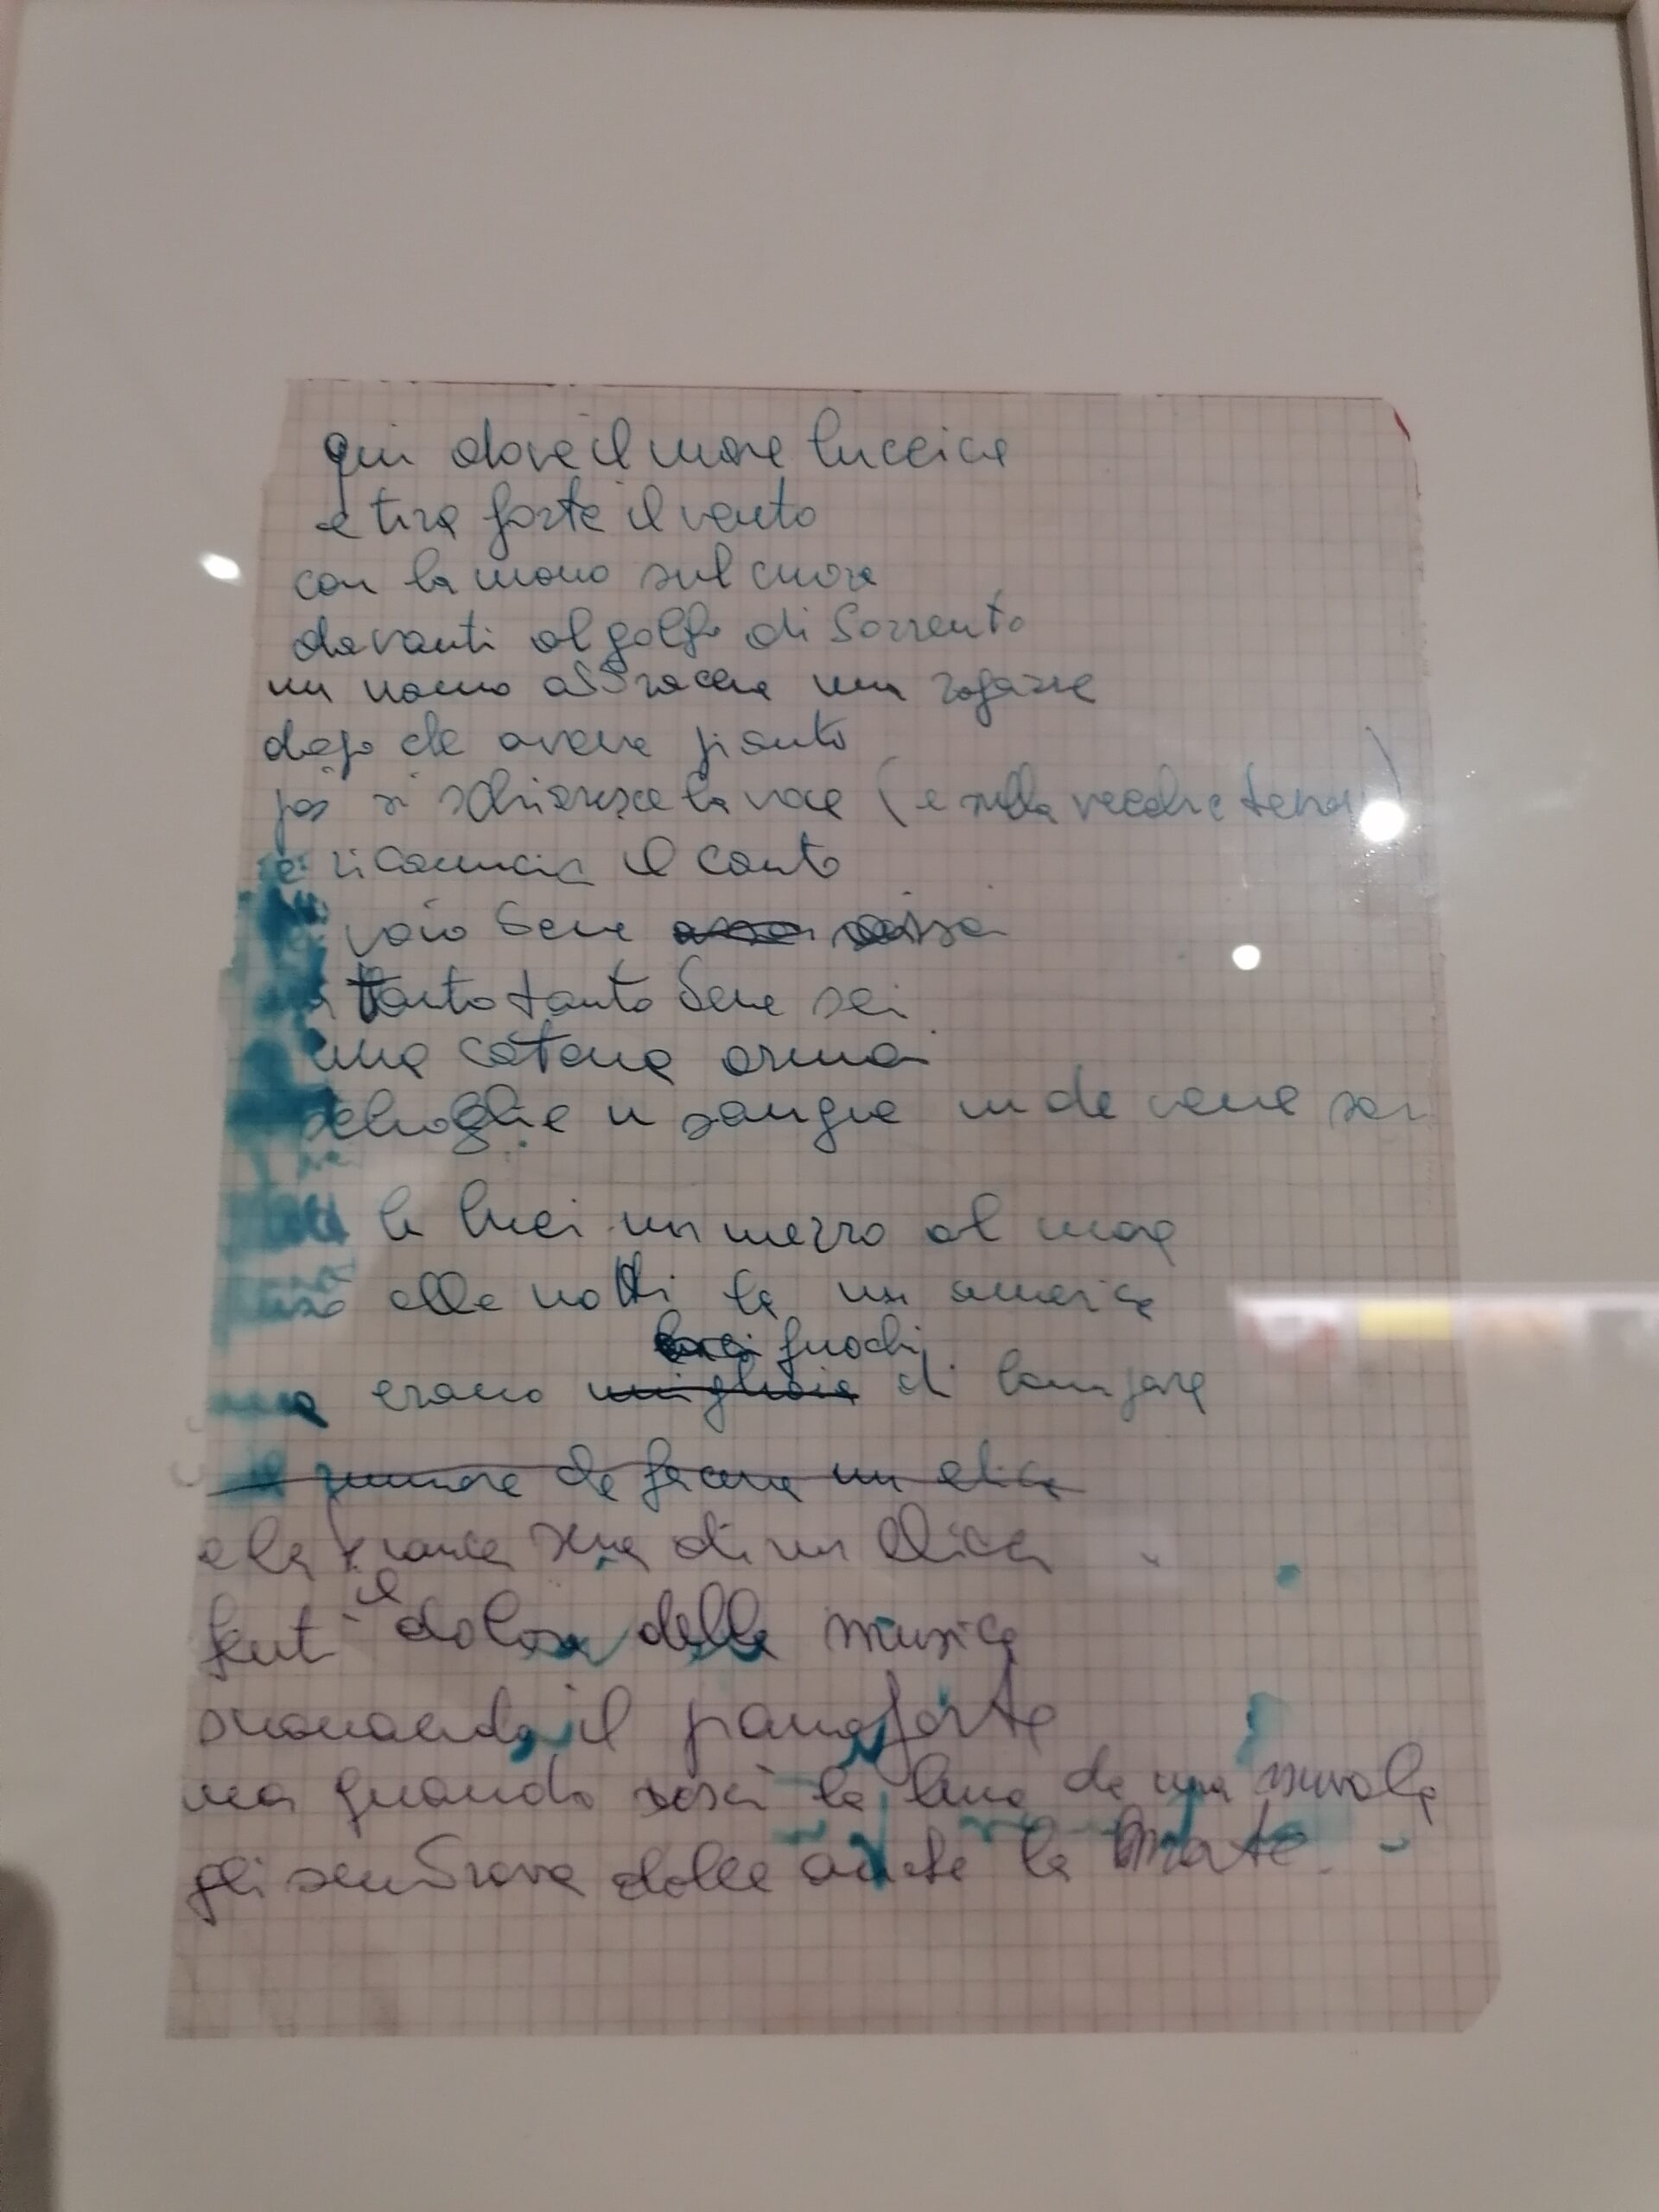 qui dove il mare luccica
e tira forte il vento
con la mano sul cuore
davanti al golfo di Sorrento
un uomo abbraccia una ragazza
dopo che aveva pianto
poi si schiarisce la voce (e sulla vecchia terra)
e ricomincia il canto
voio bene assai
tanto tanto bene sai
una catena ormai
schioglie u sangue inde vene sai
le luci in mezzo al mare
alle notti la in america
luci fuochi
ma erano migliaia di lampare
il rumore che faceva un elica
e la bianca scia di un elica
sentì il dolore della musica
suonando il pianoforte
ma quando uscì la luna da una nuvola
gli sembrava dolce anche la morte.